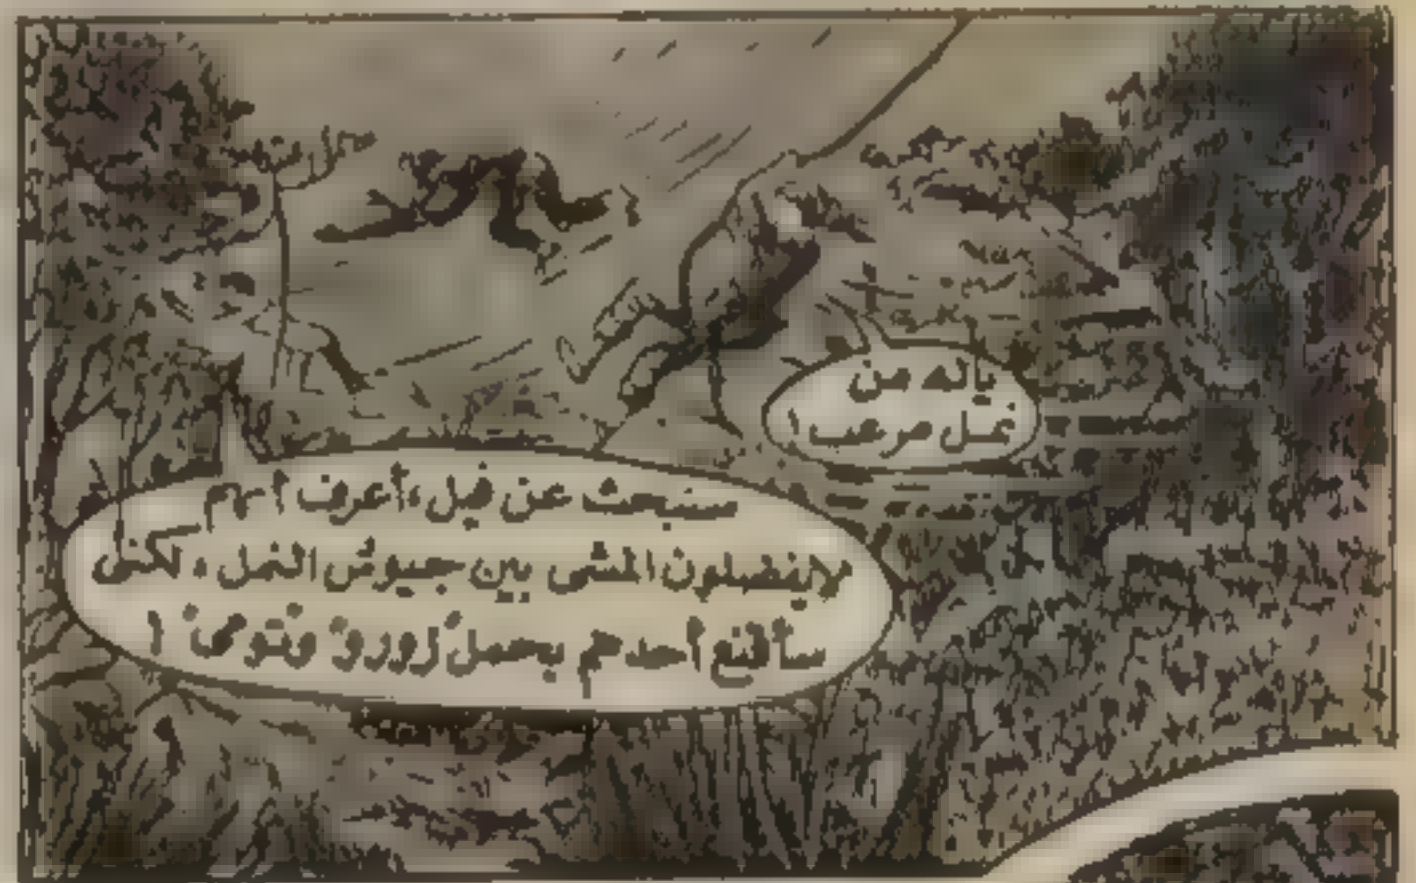 يا له من
نمل مرعب !
سنبحث عن فيل ، أعرف أنهم
لا يفضلون المشى بين جيوش النمل ، لكنى
سأقنع أحدهم بحمل زورو وتوكى !